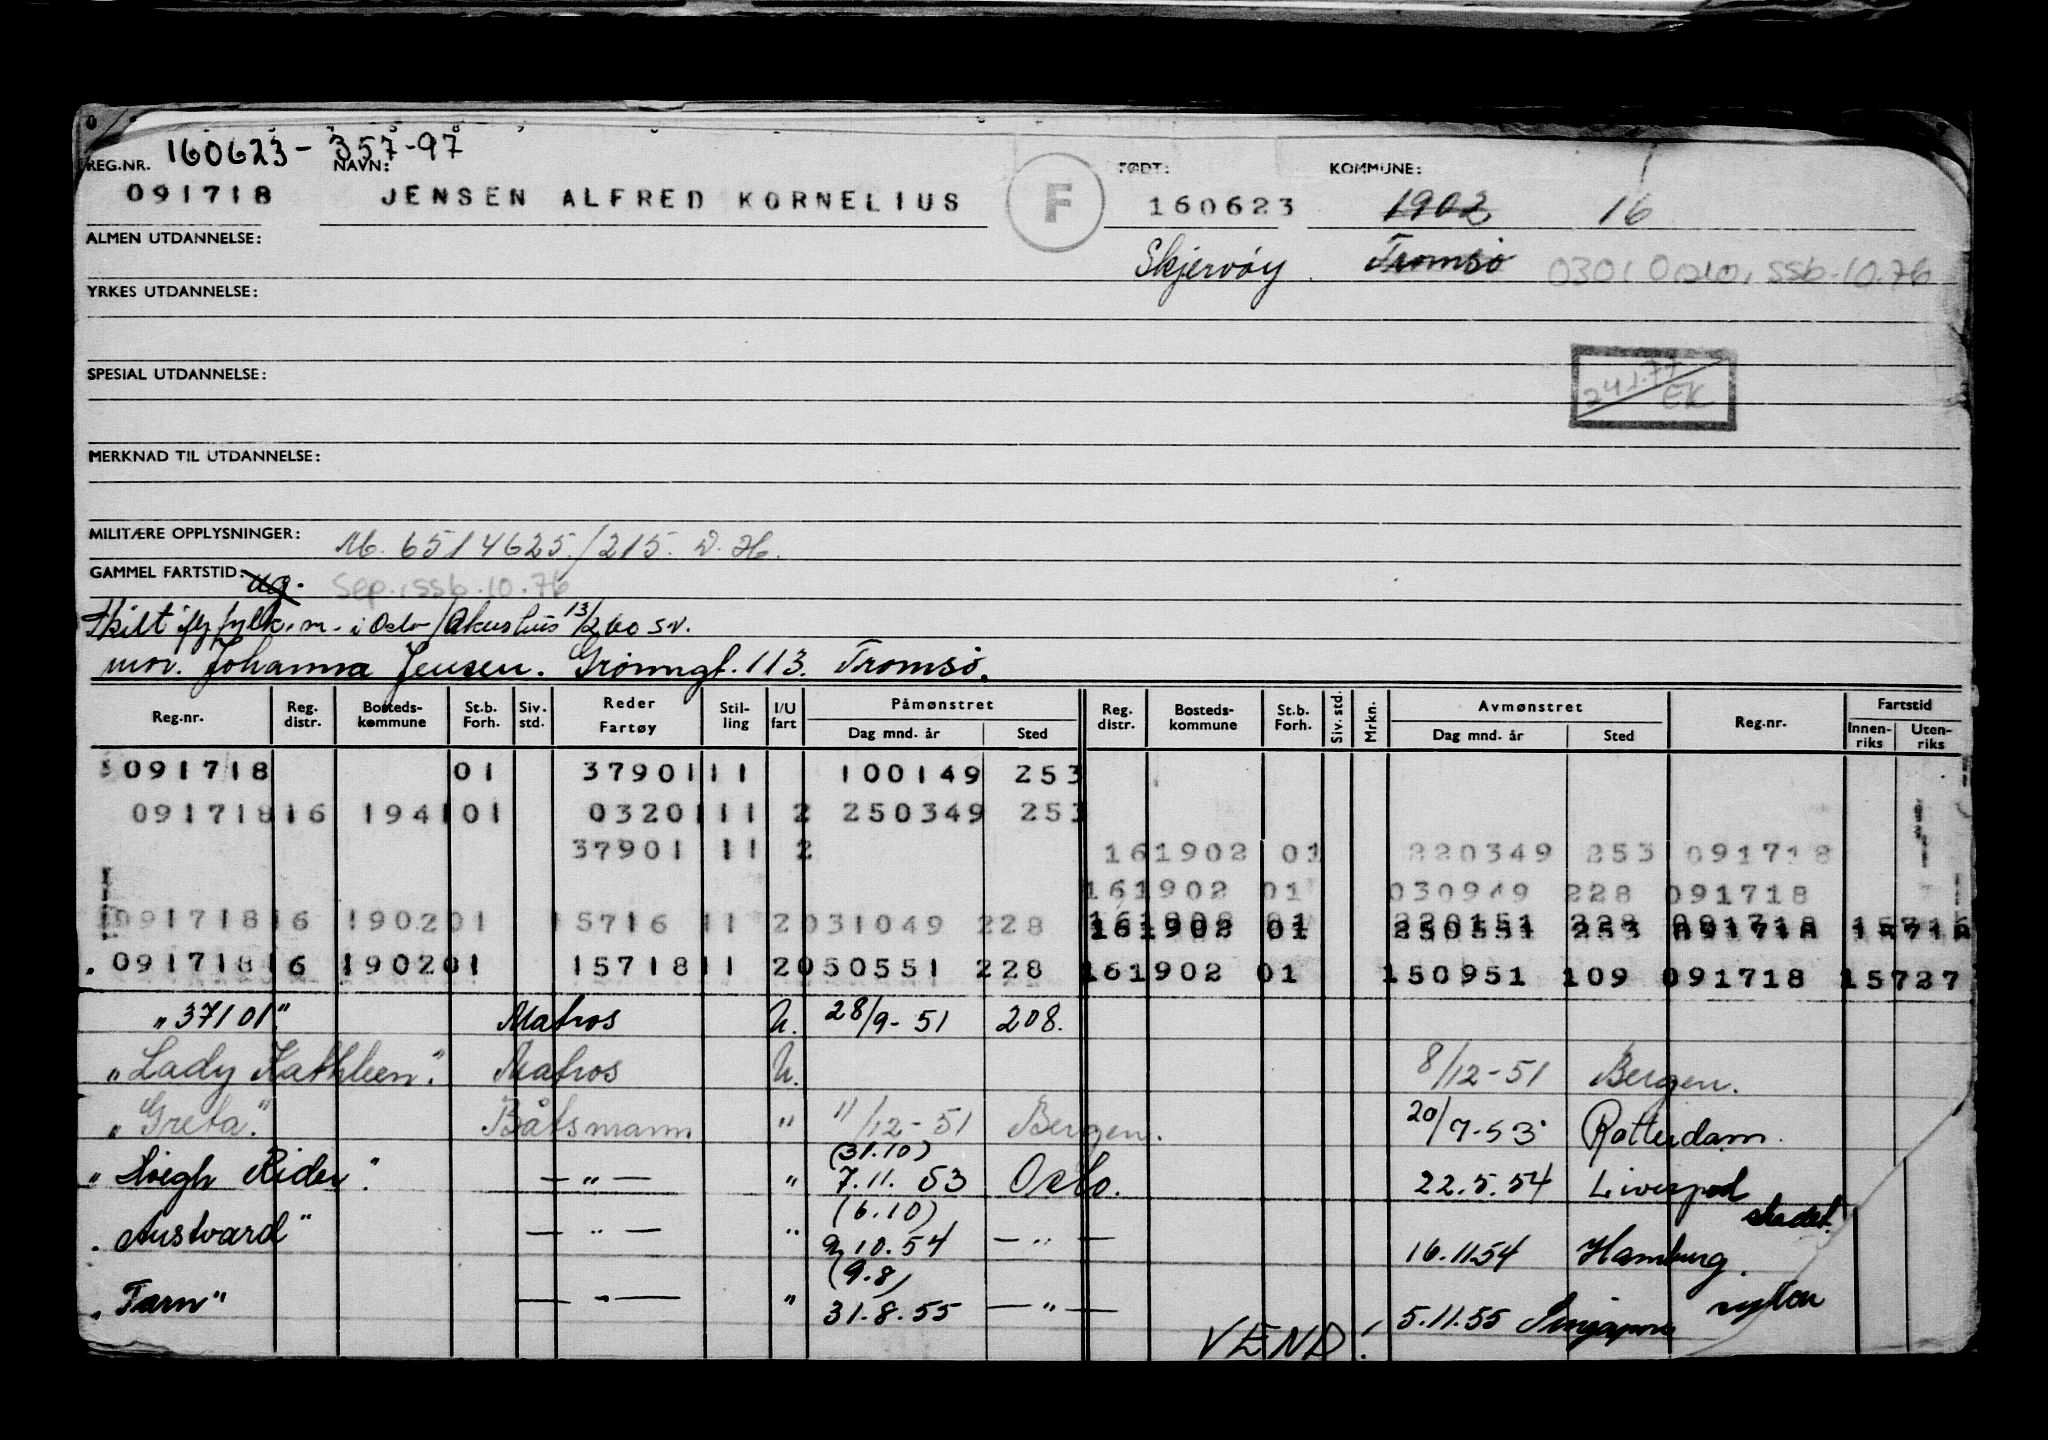 160623-357-97
REG.NR. NAVN: FØDT: KOMMUNE:
091718 JENSEN ALFRED KORNELIUS F 160623 1902 16
ALMEN UTDANNELSE: Skjervøy Tromsø 0301 Oslo, ssb-10.76
YRKES UTDANNELSE:
SPESIAL UTDANNELSE: 24.1.77 EK
MERKNAD TIL UTDANNELSE:
MILITÆRE OPPLYSNINGER: M. 6514625/215. V. H.
GAMMEL FARTSTID: ug. Sep., ssb-10.76
Skilt ifg fylk.m. i Oslo/Akershus 13/2 60 SV.
mor. Johanna Jensen. Grønngt. 113. Tromsø.
Reg.nr. Reg. distr. Bosteds-kommune St.b. Forh. Siv. std. Reder Fartøy Stil-ling I/U fart Påmønstret Dag mnd. år Sted Reg. distr. Bosteds-kommune St.b. Forh. Siv. std. Mrkn. Avmønstret Dag mnd. år Sted Reg.nr. Fartstid Innen-riks Uten-riks
091718 01 37901 11 100149 253
091718 16 1941 01 03201 11 2 250349 253
37901 11 2 16 1902 01 220349 253 091718
16 1902 01 030949 228 091718
091718 16 1902 01 15716 11 2 031049 228 16 1902 01 091718
091718 16 1902 01 15718 11 2 050551 228 16 1902 01 150951 109 091718 15727
"37101" Matros U. 28/9-51 208.
"Lady Kathleen". Matros U. 8/12-51 Bergen.
"Greta". Båtsmann " 11/12-51 Bergen. 20/7-53 Rotterdam.
(31.10)
"Høegh Rider". — " — " 7.11.53 Oslo. 22.5.54 Liverpool
(6.10) skadet
"Austvard" — " — " 9.10.54 — " — 16.11.54 Hamburg.
(9.8)
"Tarn" — " — " 31.8.55 — " — 5.11.55 Singapore syk
VEND!